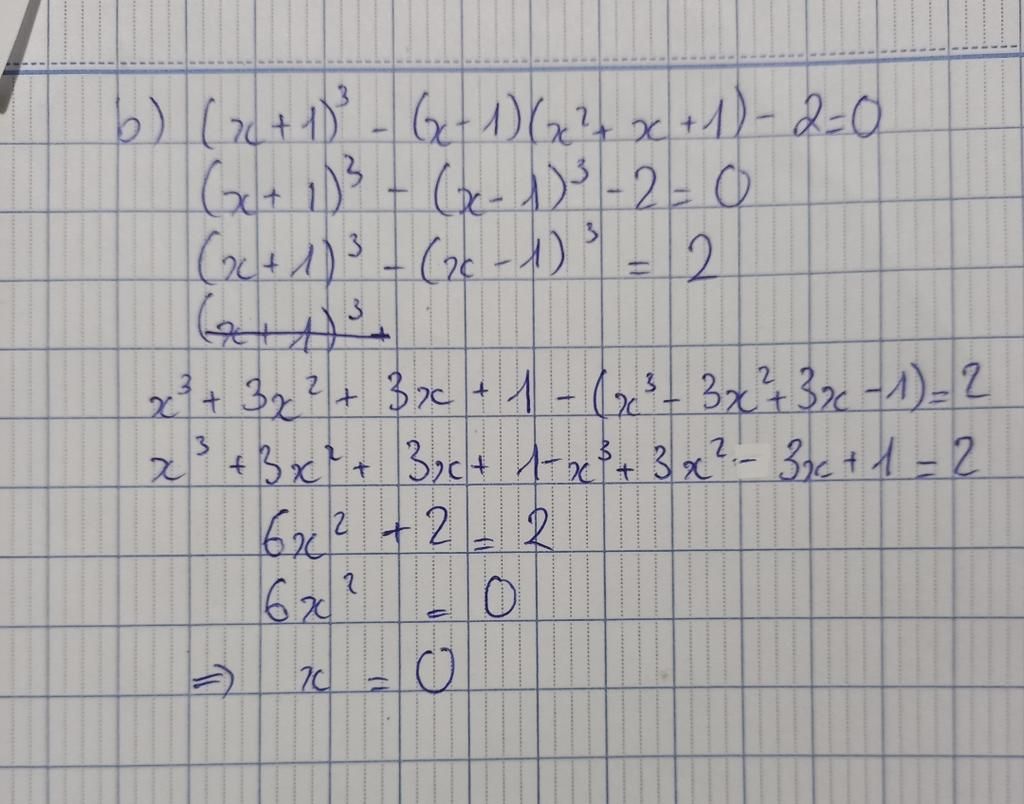 b) (x+1)³ - (x-1)(x²+ x+1) - 2=0
(x+1)³ - (x-1)³ - 2 = 0
(x+1)³ - (x-1)³ = 2
(x+1)³ +
x³ + 3x² + 3x + 1 - (x³ - 3x² + 3x - 1) = 2
x³ + 3x² + 3x + 1 - x³ + 3x² - 3x + 1 = 2
6x² + 2 = 2
6x² = 0
⇒ x = 0